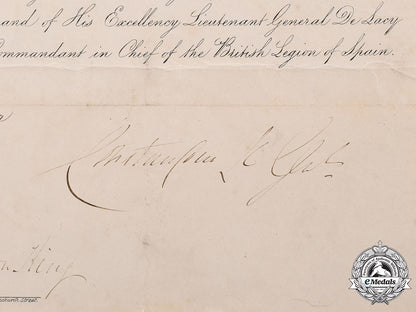 and of His Excellency Lieutenant General De Lacy
Commandant in Chief of the British Legion of Spain.
King
church Street.
eMedals